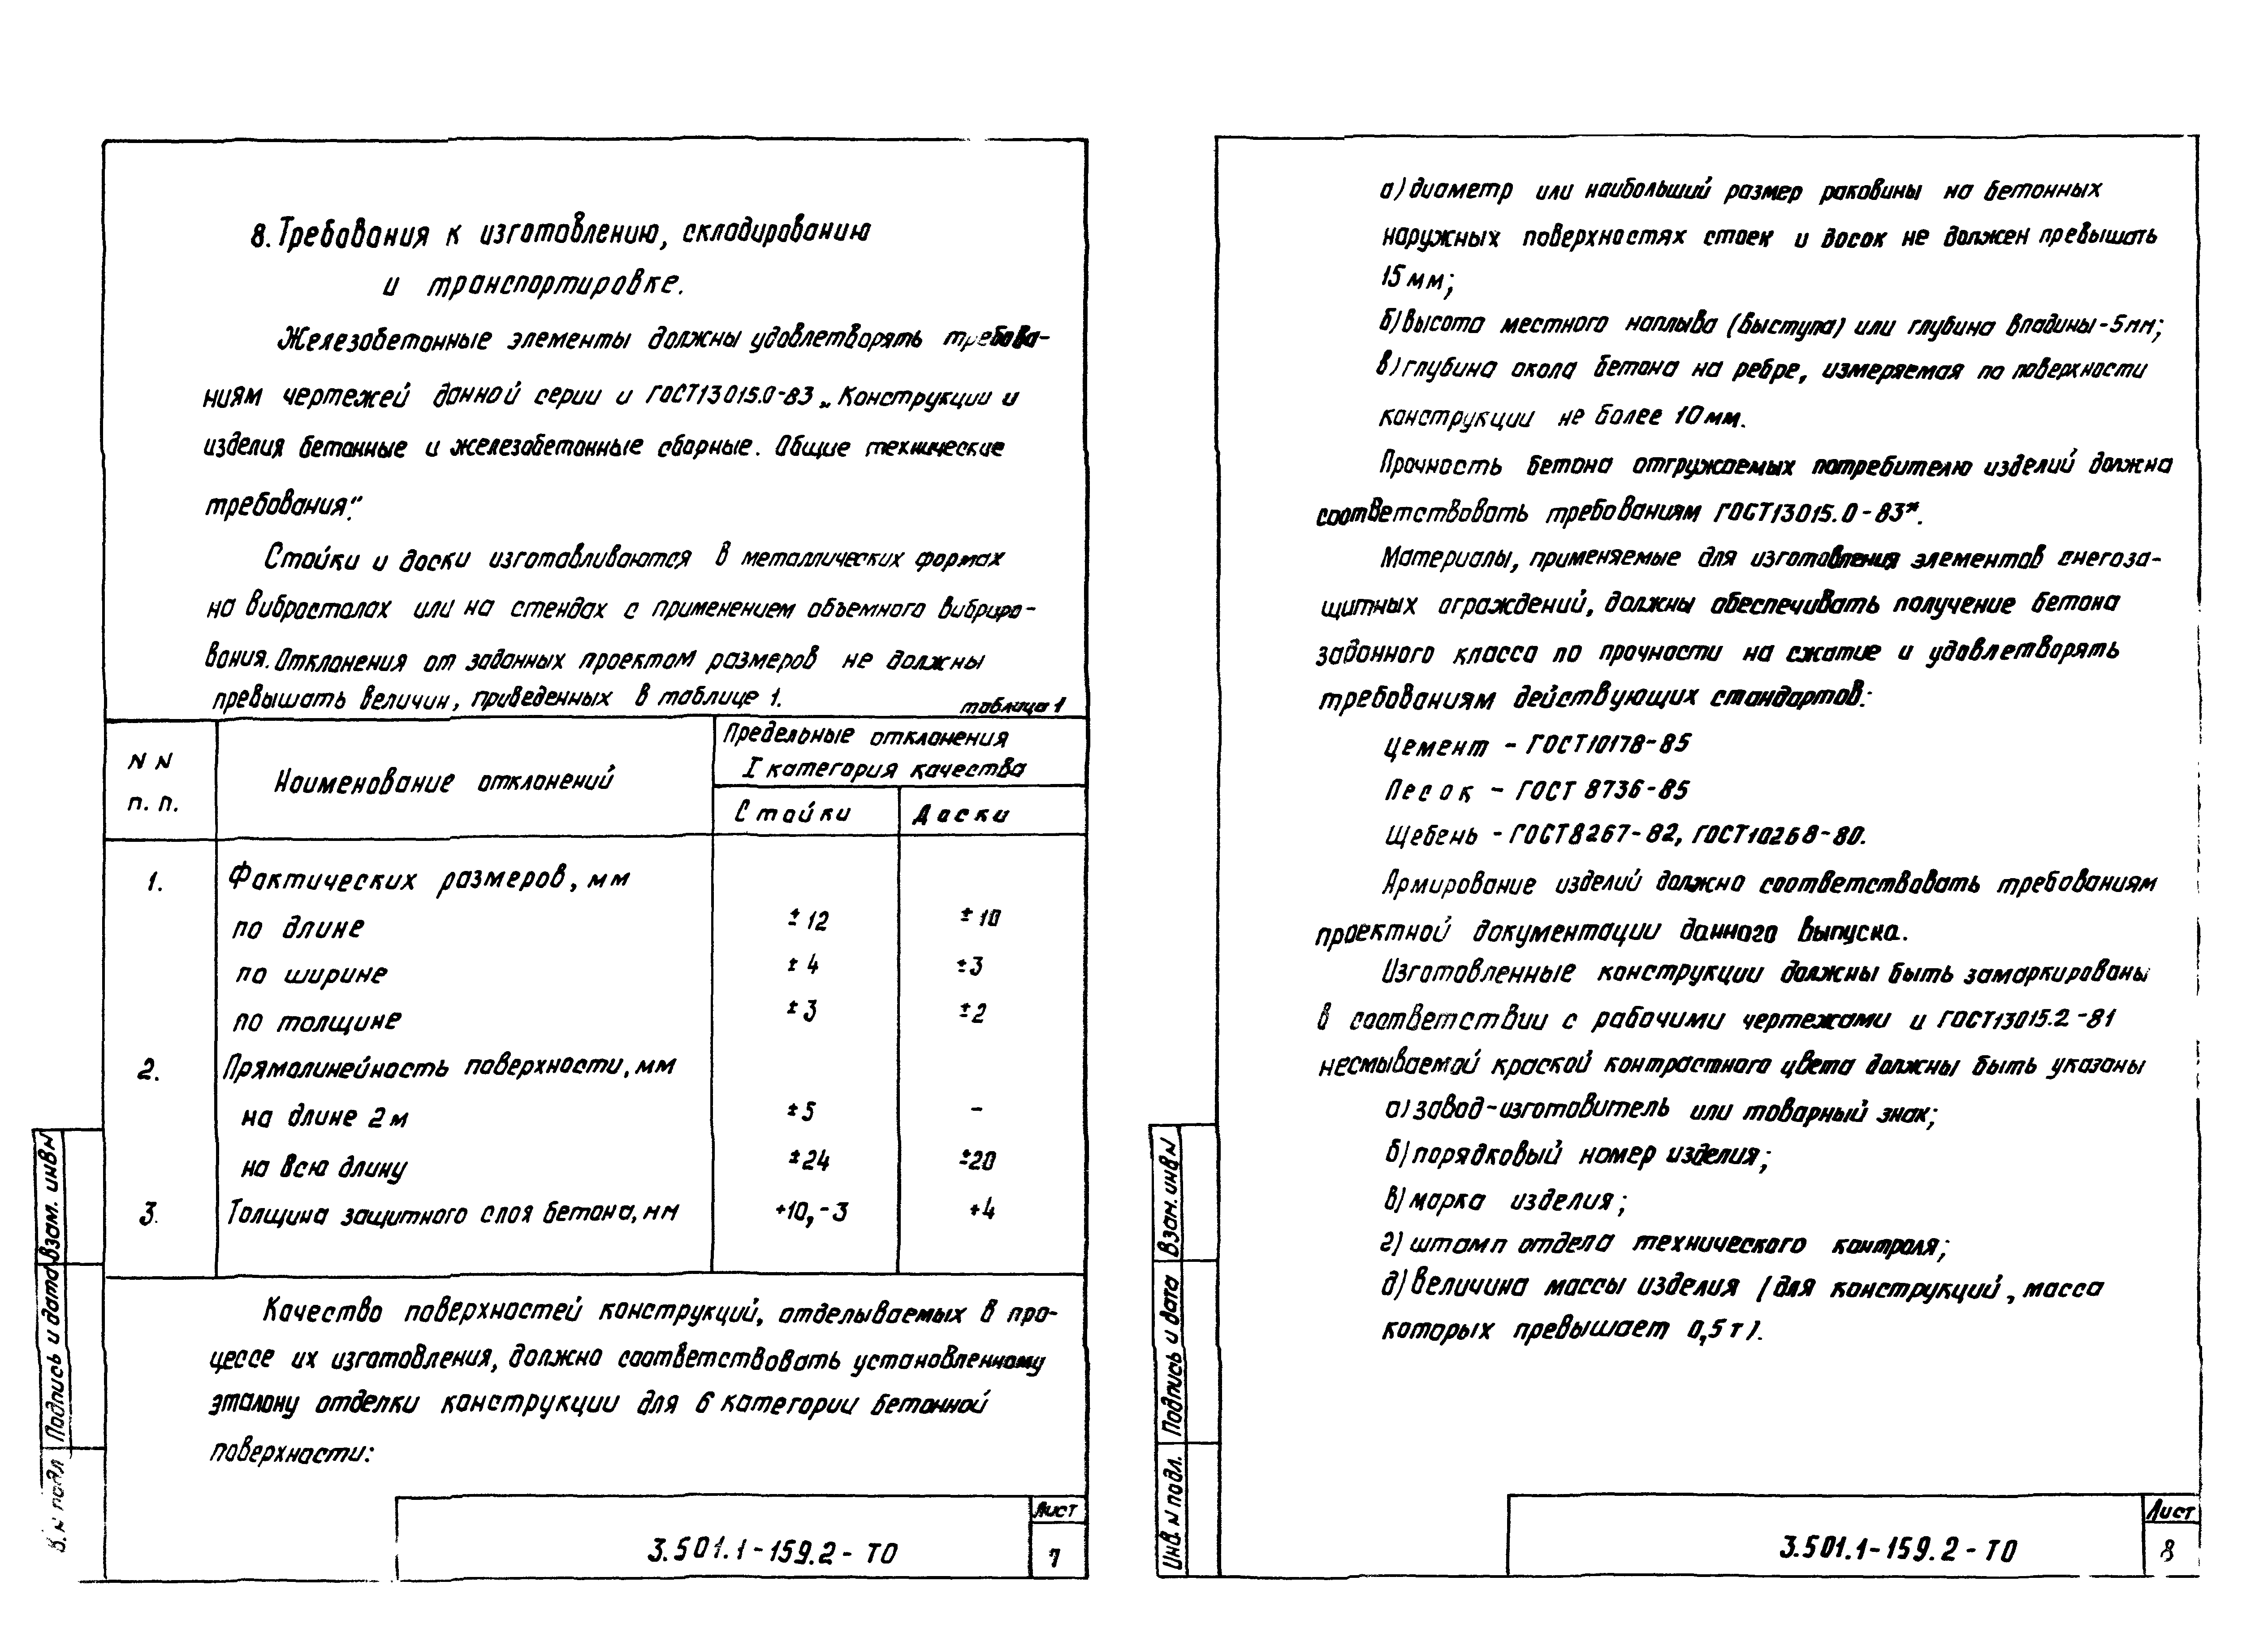 8. Требования к изготовлению, складированию
и транспортировке.
Железобетонные элементы должны удовлетворять требова-
ниям чертежей данной серии и ГОСТ13015.0-83 „Конструкции и
изделия бетонные и железобетонные сборные. Общие технические
требования".
Стойки и доски изготавливаются в металлических формах
на вибросталах или на стендах с применением объемного вибриро-
вания. Отклонения от заданных проектом размеров не должны
превышать величин, приведенных в таблице 1.
таблица 1
N N
п. п.
Наименование отклонений
Предельные отклонения
I категория качества
Стойки
Доски
1. Фактических размеров, мм
по длине ±12 ±10
по ширине ±4 ±3
по толщине ±3 ±2
2. Прямолинейность поверхности, мм
на длине 2м ±5 -
на всю длину ±24 ±20
3. Толщина защитного слоя бетона, мм +10, -3 +4
Качество поверхностей конструкций, отделываемых в про-
цессе их изготовления, должно соответствовать установленному
эталону отделки конструкции для 6 категории бетонной
поверхности:
3.501.1-159.2-ТО
Лист
7
Взам. инв N
Подпись и дата
в. N подл
а) диаметр или наибольший размер раковины на бетонных
наружных поверхностях стоек и досок не должен превышать
15 мм;
б) высота местного наплыва (выступа) или глубина впадины-5мм;
в) глубина окола бетона на ребре, измеряемая по поверхности
конструкции не более 10 мм.
Прочность бетона отгружаемых потребителю изделий должна
соответствовать требованиям ГОСТ13015.0-83*.
Материалы, применяемые для изготовления элементов снегоза-
щитных ограждений, должны обеспечивать получение бетона
заданного класса по прочности на сжатие и удовлетворять
требованиям действующих стандартов:
Цемент - ГОСТ10178-85
Песок - ГОСТ 8736-85
Щебень - ГОСТ8267-82, ГОСТ10268-80.
Армирование изделий должно соответствовать требованиям
проектной документации данного выпуска.
Изготовленные конструкции должны быть замаркированы
в соответствии с рабочими чертежами и ГОСТ13015.2-81
несмываемой краской контрастного цвета должны быть указаны
а) завод-изготовитель или товарный знак;
б) порядковый номер изделия;
в) марка изделия;
г) штамп отдела технического контроля;
д) величина массы изделия (для конструкций, масса
которых превышает 0,5 т).
3.501.1-159.2-ТО
Лист
8
Взам. инв N
Подпись и дата
Инв. N подл.